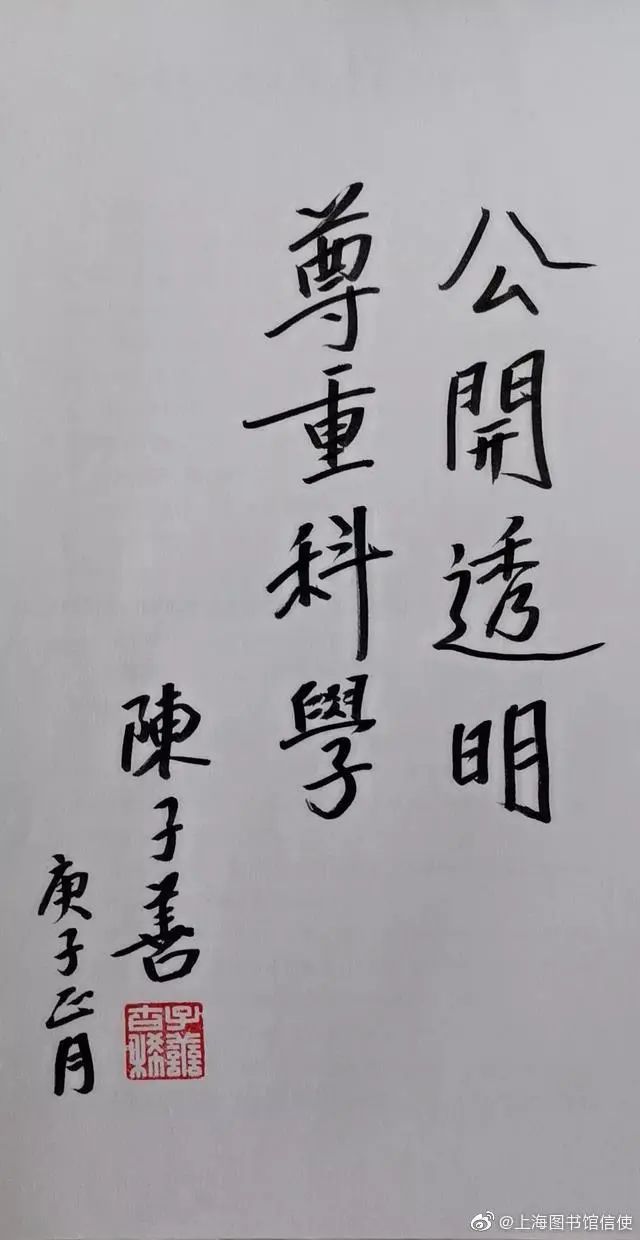 公開透明
尊重科學
陳子善
庚子正月
@上海图书馆信使